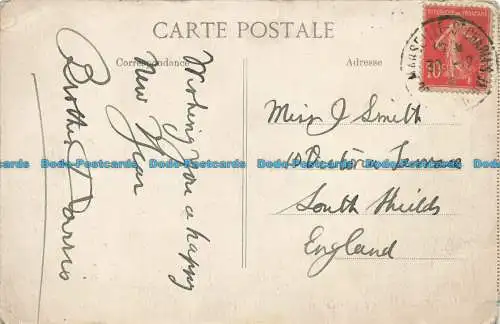 CARTE POSTALE
Correspondance
Adresse
Wishing you a happy
New Year
Brother
Miss J Smith
10 Terrace
South Shields
England
REPUBLIQUE FRANCAISE
10c
MARSE
Bodo-Postcards Bodo-Postcards Bodo-Postcards Bodo-Postcards Bodo-Postcards Bodo-Postcards